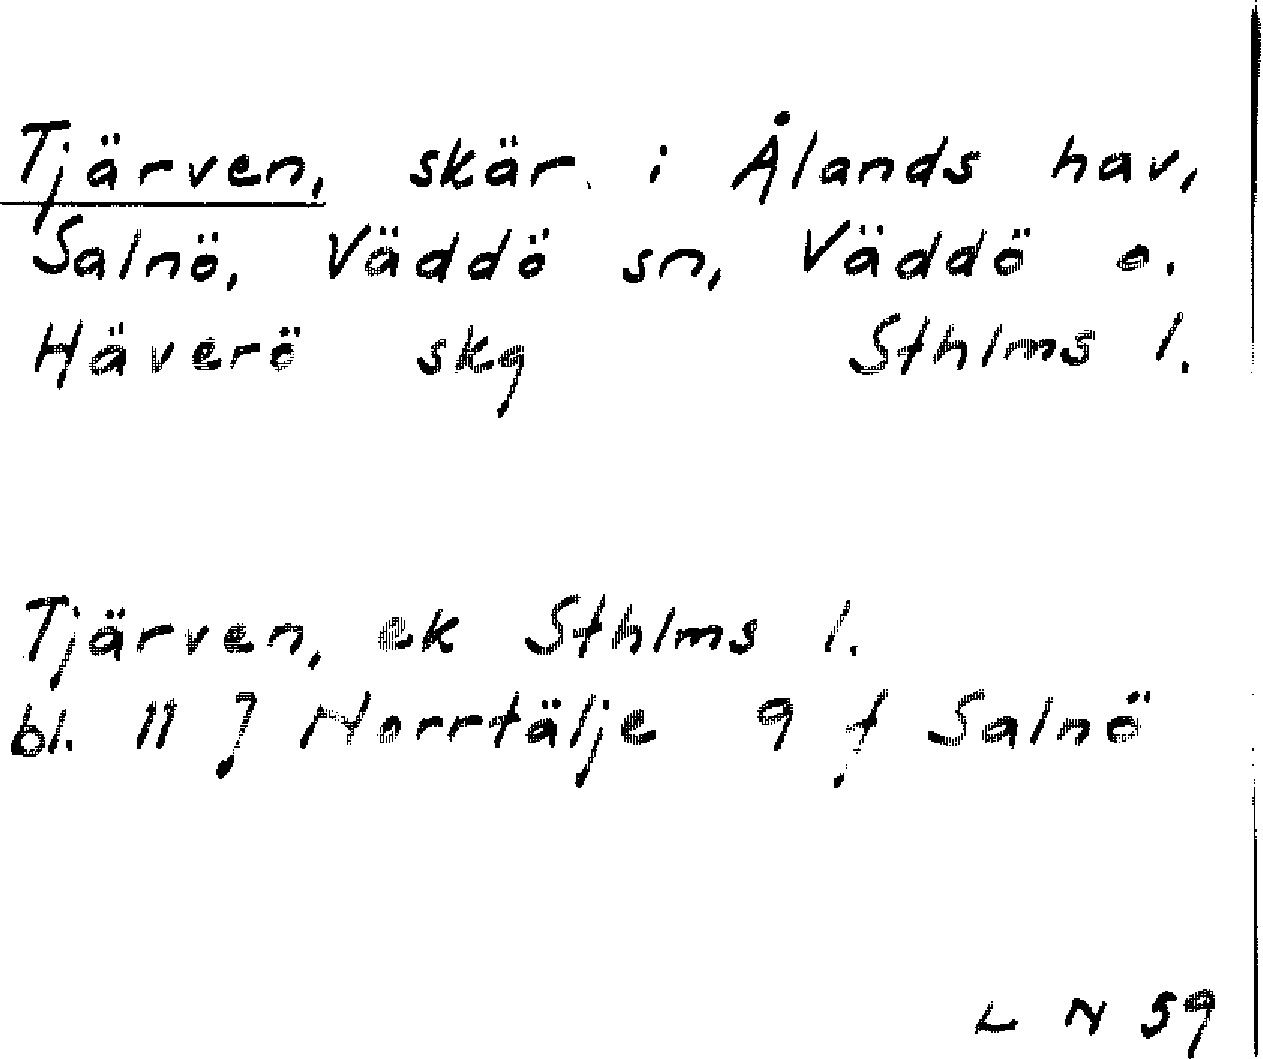 Tjärven, skär i Ålands hav,
Salnö, Väddö sn, Väddö o.
Häverö skg Sthlms l.
Tjärven, ek Sthlms l.
bl. 11 J Norrtälje 9 f Salnö
L N 59